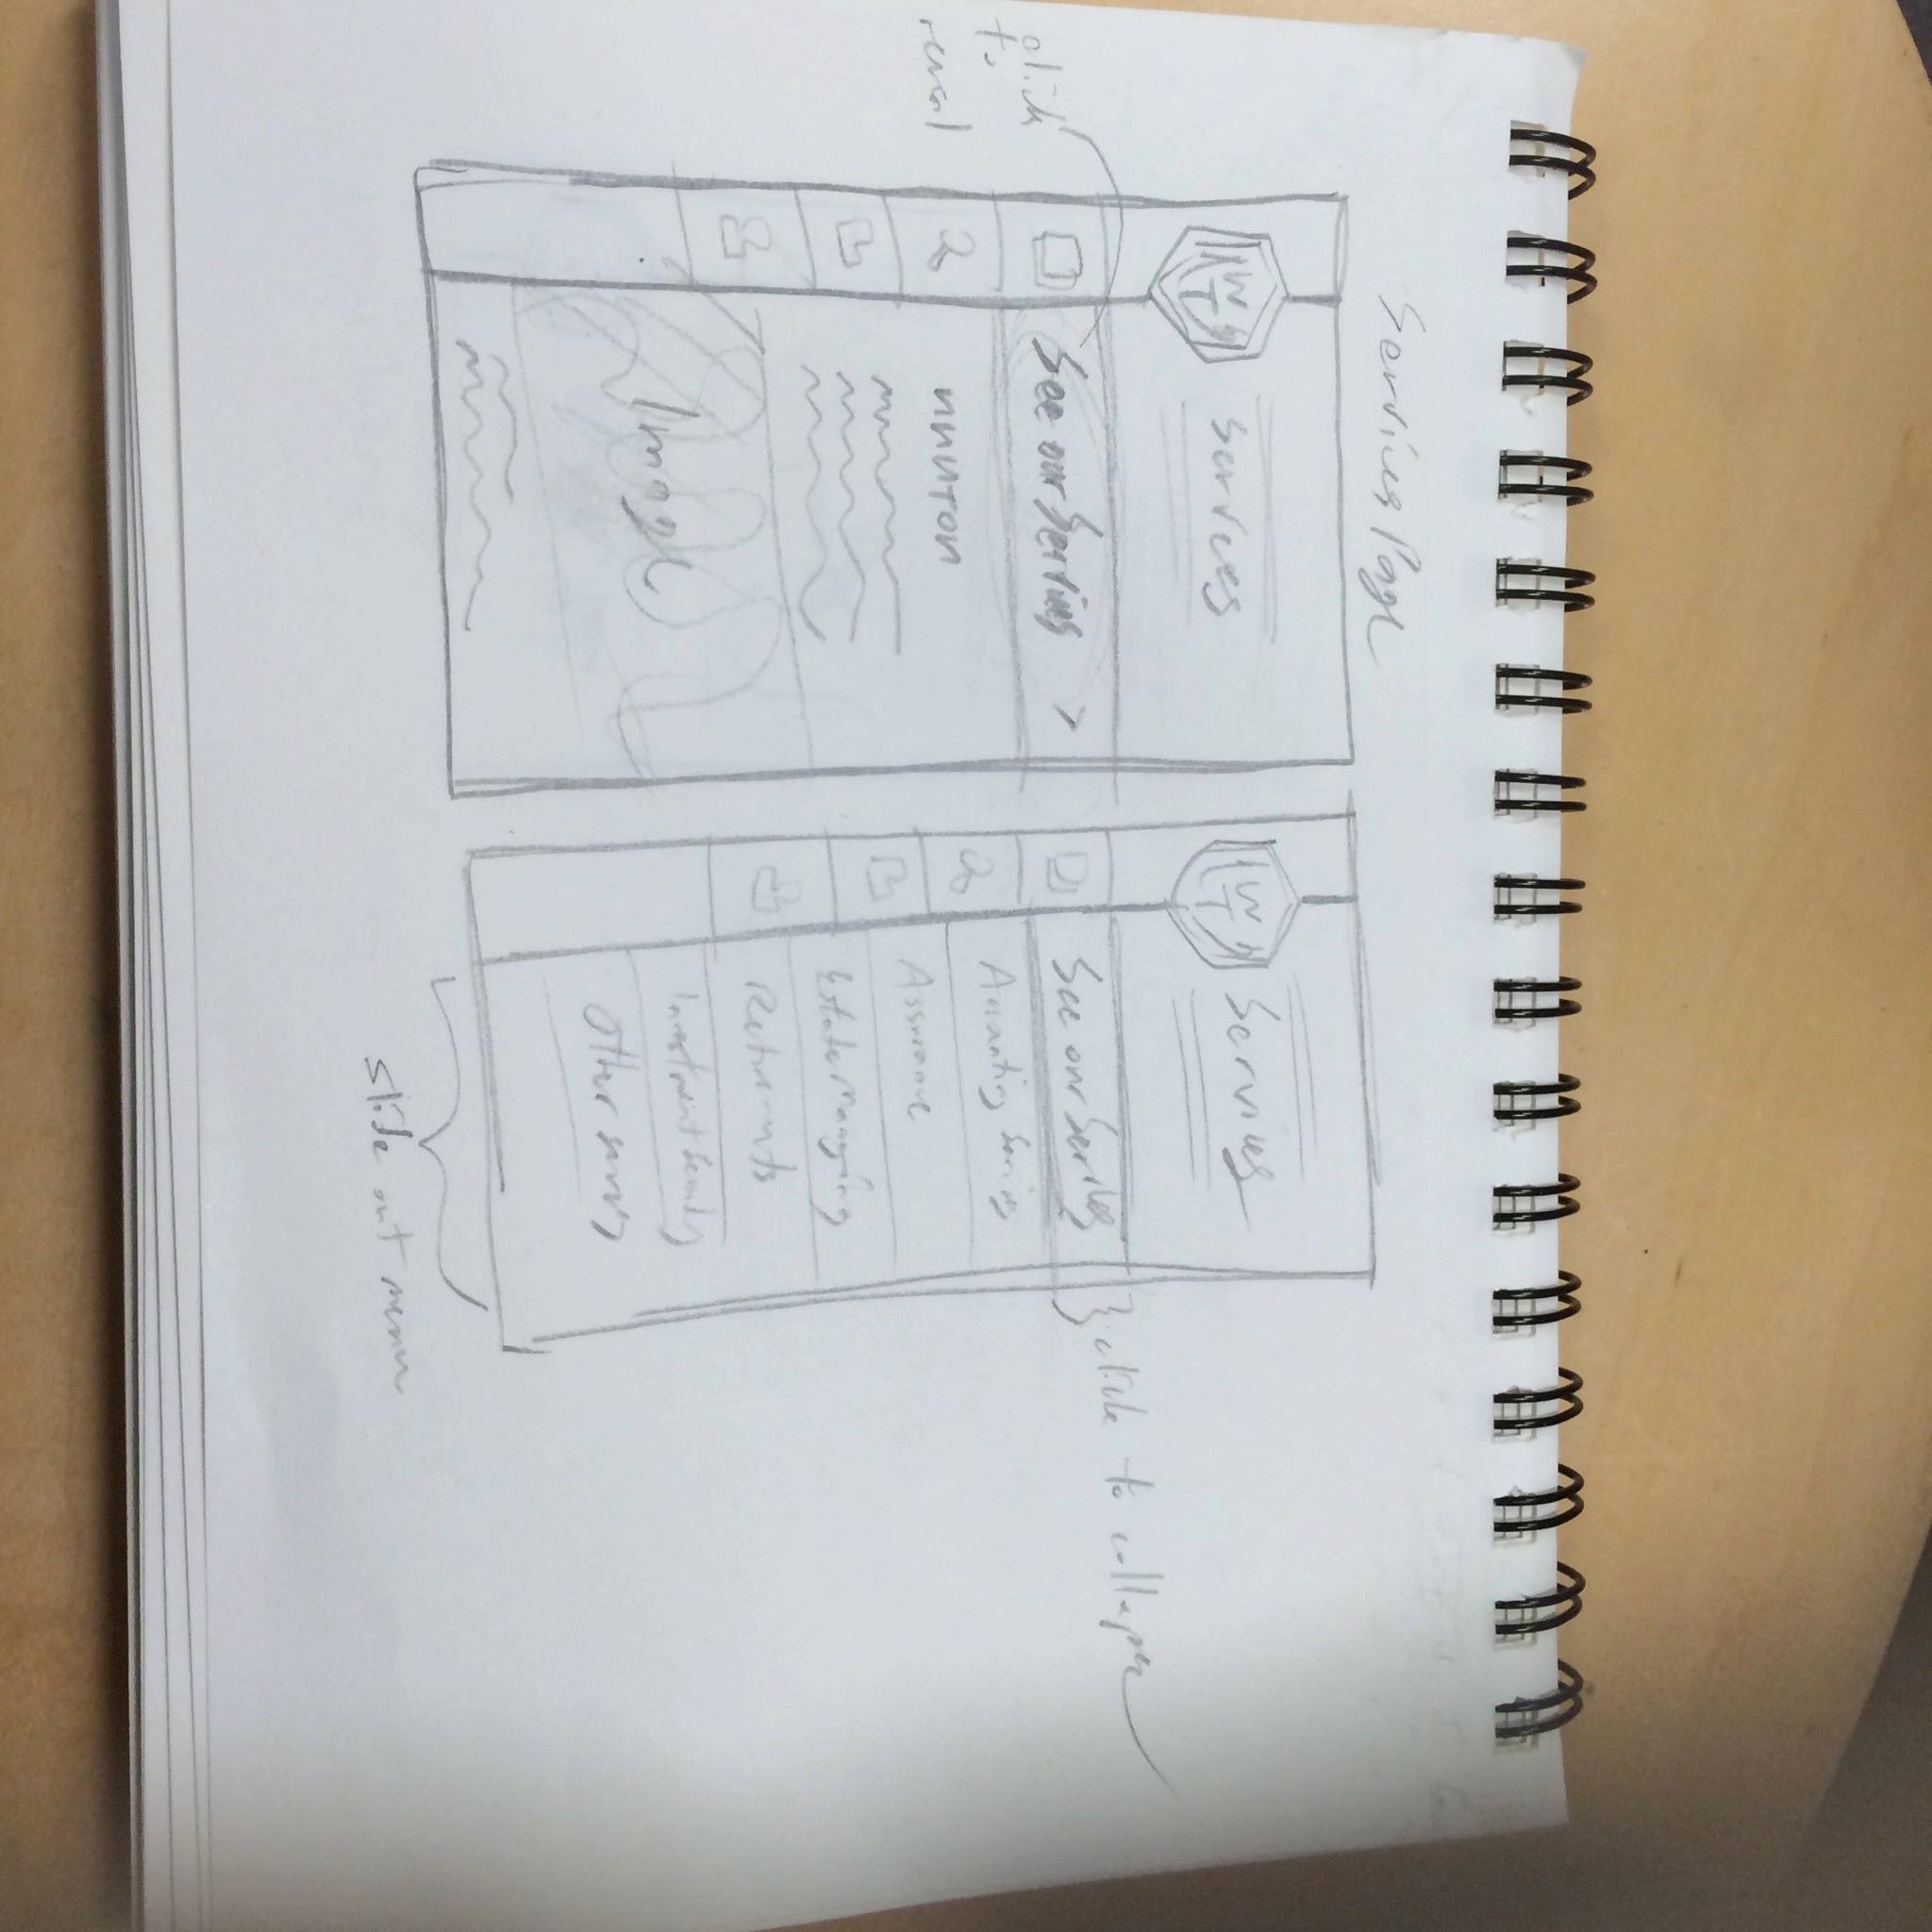 Services Page
click
to
reveal
Services
See our Services >
Image
Services
See our Services
Accounting Services
Assurance
Estate Managing
Retirements
Other
click to collapse
slide out menu